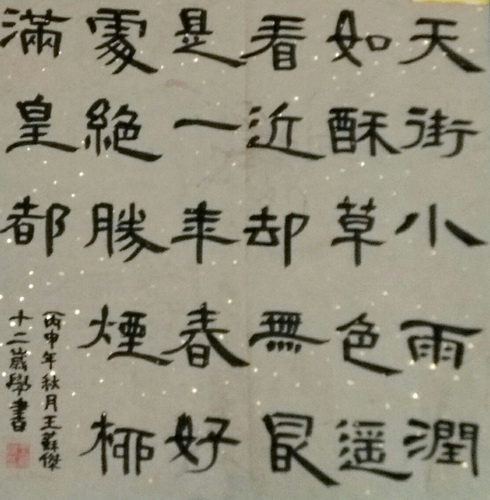 天街小雨潤
如酥草色遥
看近却無最
是一年春好
處絶勝煙柳
滿皇都
丙申年秋月王傑
十二歲學書